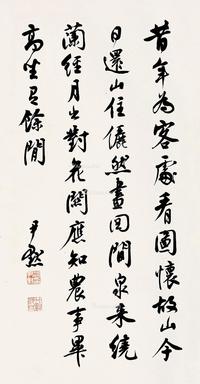 昔年為客處看圖懷故山今
日還山住儼然畫図間泉来繞
蘭徑月上對花關應知農事畢
高坐有餘閒
尹默